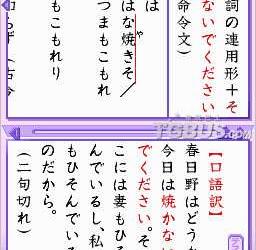 詞の連用形＋そ
ないでください
命令文）
は
はな焼きそ／
や
つまもこもれり
もこもれり
TGBUS.com
【口語訳】
春日野はどうか
今日は焼かない
でください。そ
こには妻もひそ
んでいるし、私
もひそんでいる
のだから。
（二句切れ）